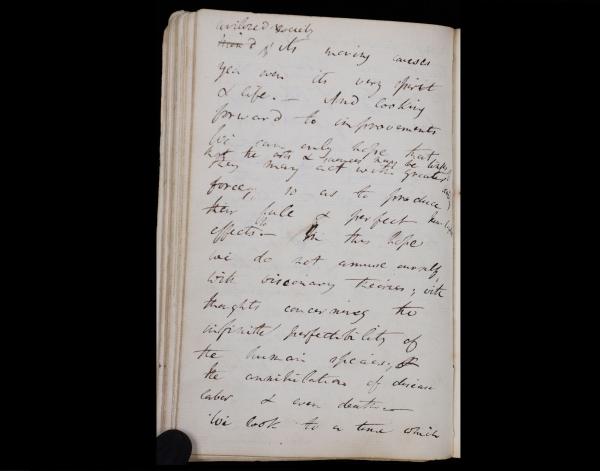 civilized society
& its moving causes
yea even its very spirit
& life. — And looking
forward to improvements
We can only hope that
that the arts & sciences may be
they may act with greater
force, so as to produce
their full & perfect
effects — In this hope
we do not amuse ourselves
with visionary theories; with
thoughts concerning the
infinite perfectibility of
the human species; of
the annihilation of disease
labor & even death —
We look to a time which